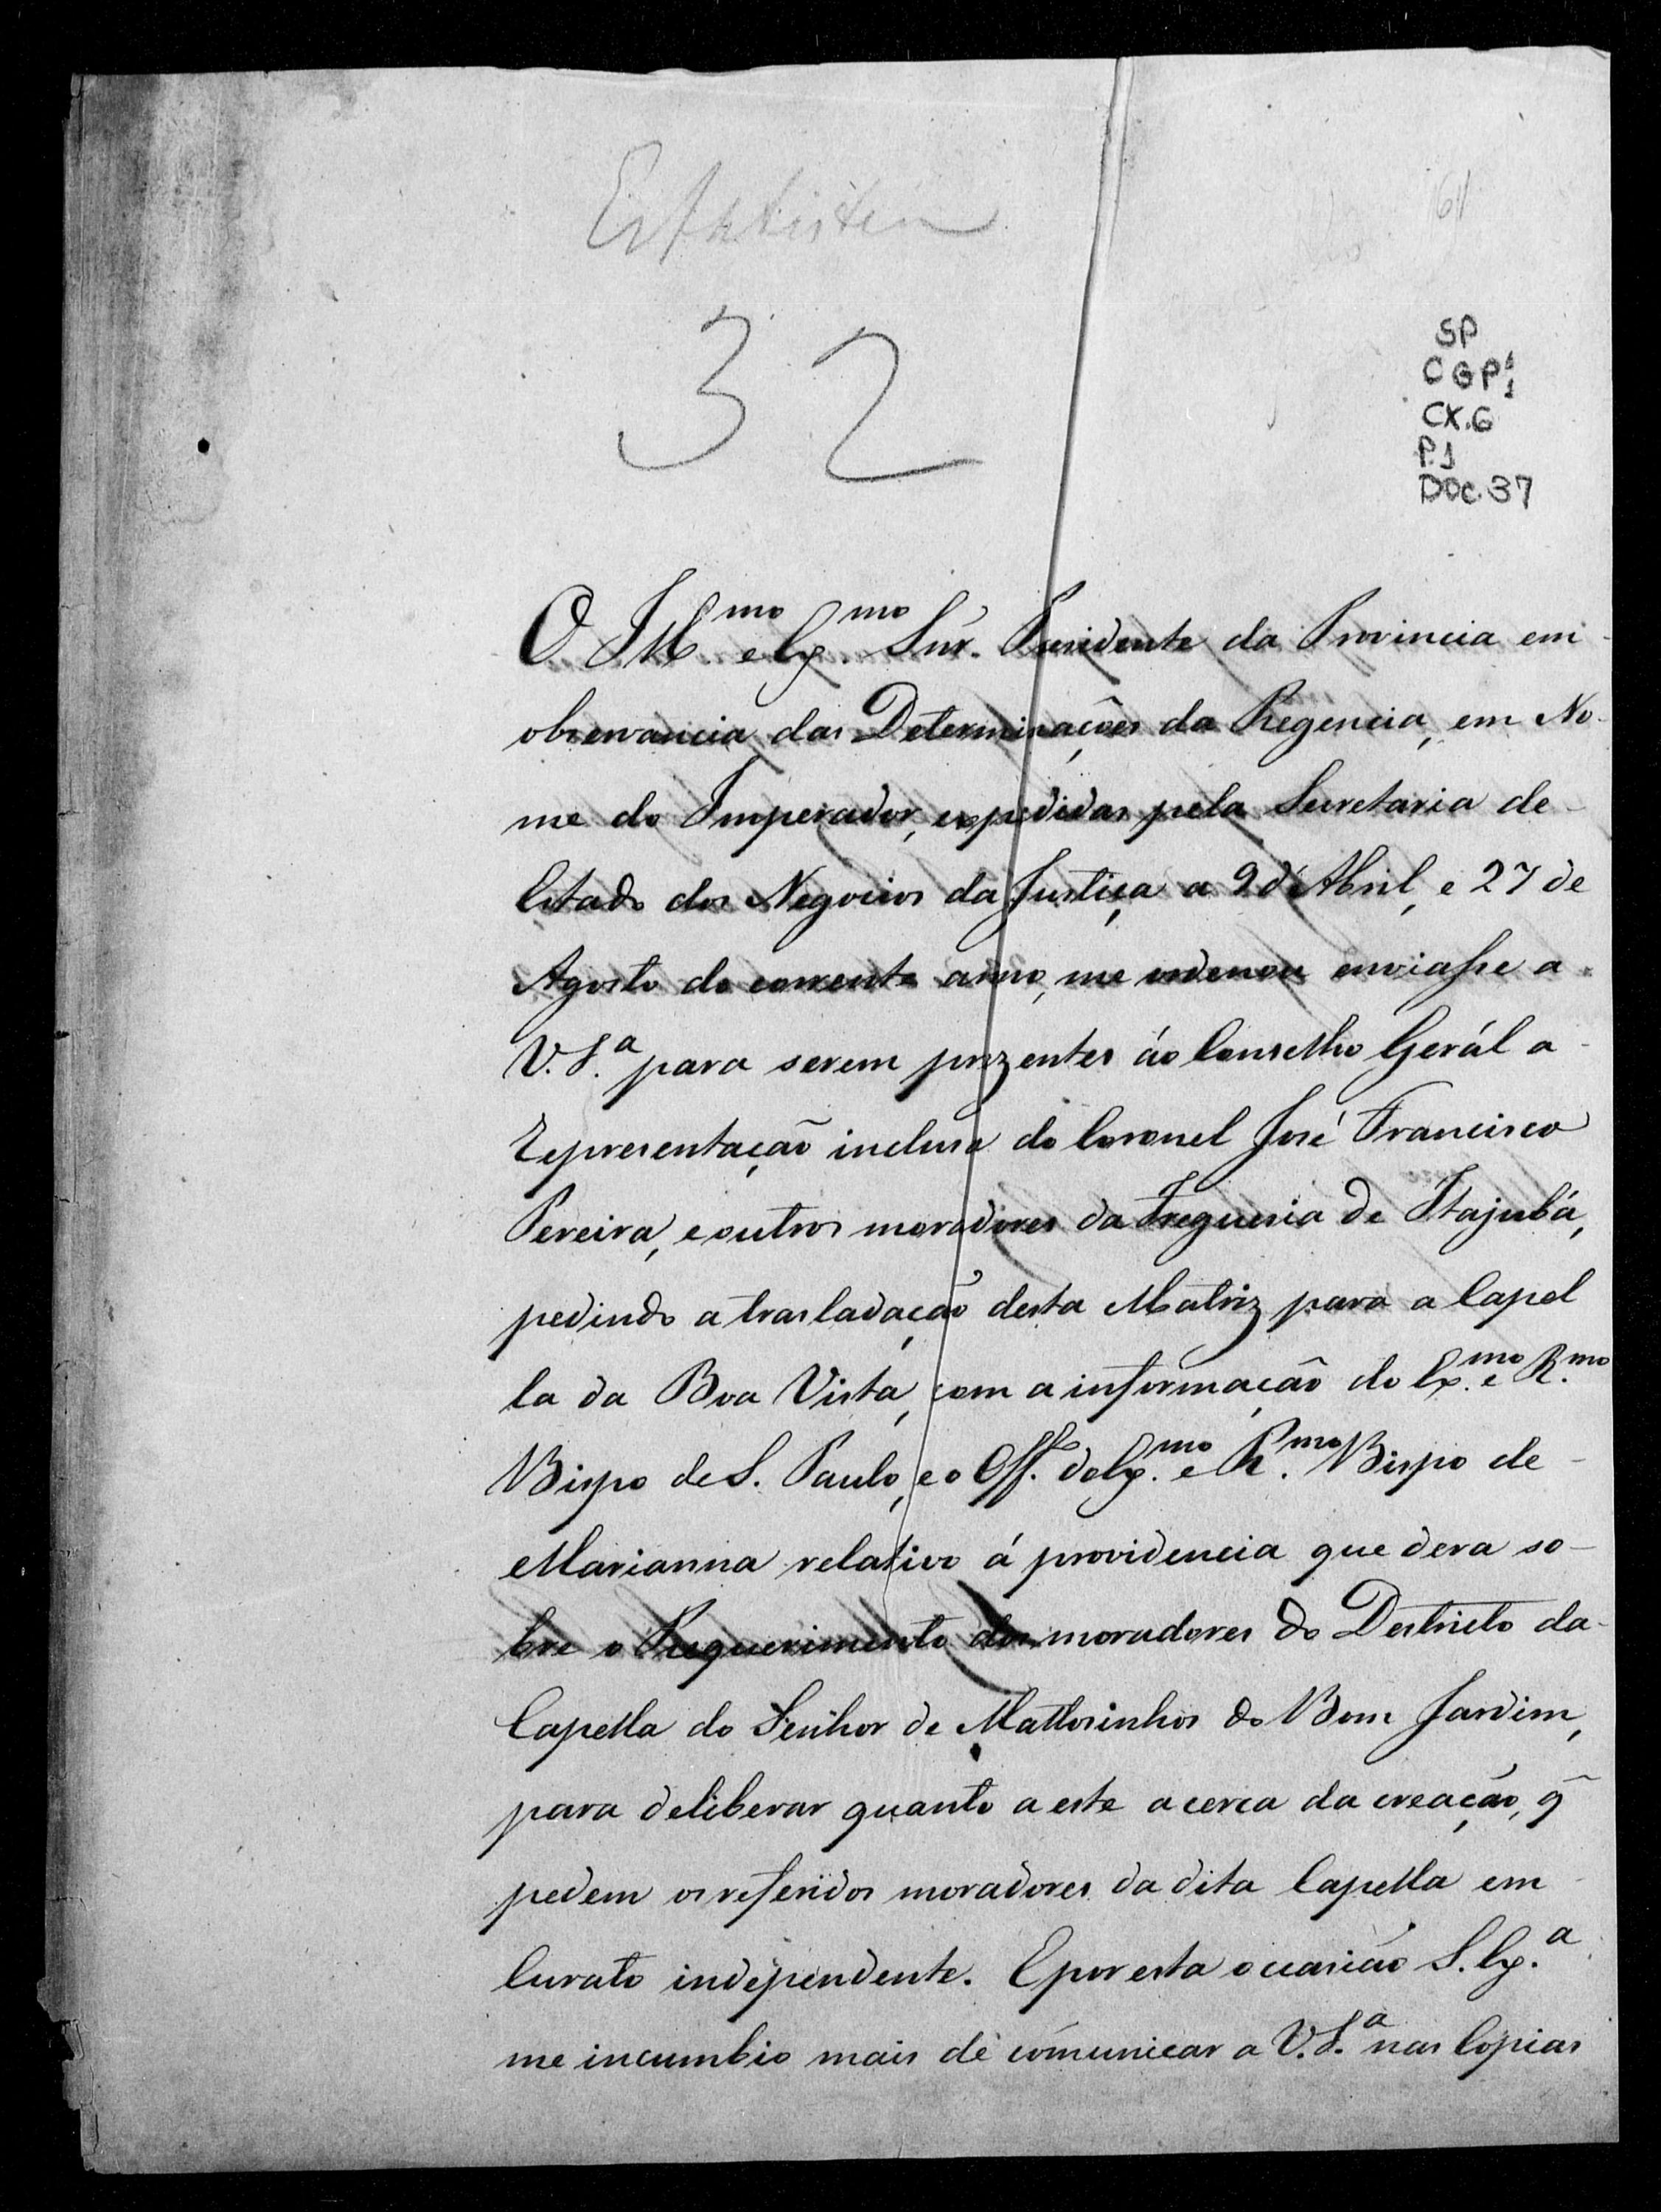 32
SP
CGP¹1
CX.6
P.1
DOC.37
O Ill.mo e Ex.mo Snr. Prezidente da Provincia em
observancia das Determinações da Regencia, em No-
me do Imperador, expedidas pela Secretaria de
Estado dos Negocios da Justiça a 9 d'Abril, e 27 de
Agosto do corrente anno, me ordenou enviasse a
V.S.a para serem prezentes áo Conselho Gerál a
Representação incluza do Coronel José Francisco
Pereira, e outros moradores da Freguesia de Itajubá,
pedindo a trasladação desta Matriz para a Capel
la da Boa Vista, com a informação do Ex.mo e R.mo
Bispo de S. Paulo, e o Off.o do Ex.mo e R.mo Bispo de
Marianna relativo á providencia que dera so-
bre o Requerimento dos moradores do Destricto da
Capella do Senhor de Mattosinhos do Bom Jardim,
para deliberar quanto a este acerca da creação, q̃
pedem os referidos moradores da dita Capella em
Curato independente. E por esta occasião S. Ex.a
me incumbio mais de comunicar a V.S.a nas Copias